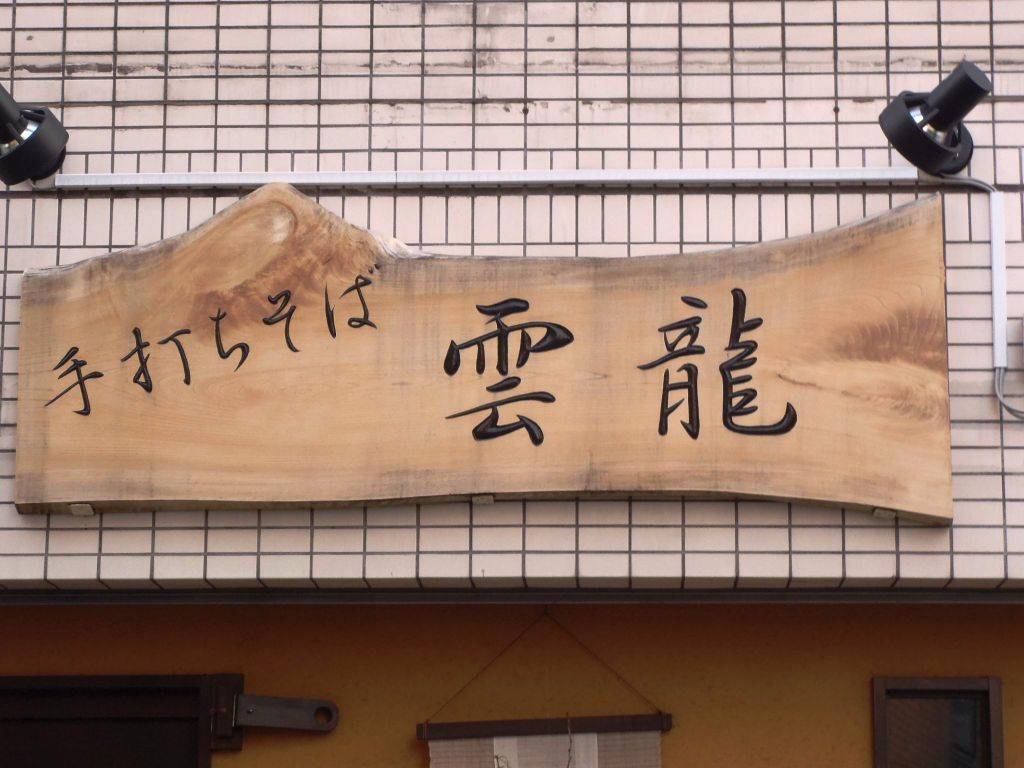 手打ちそば 雲龍